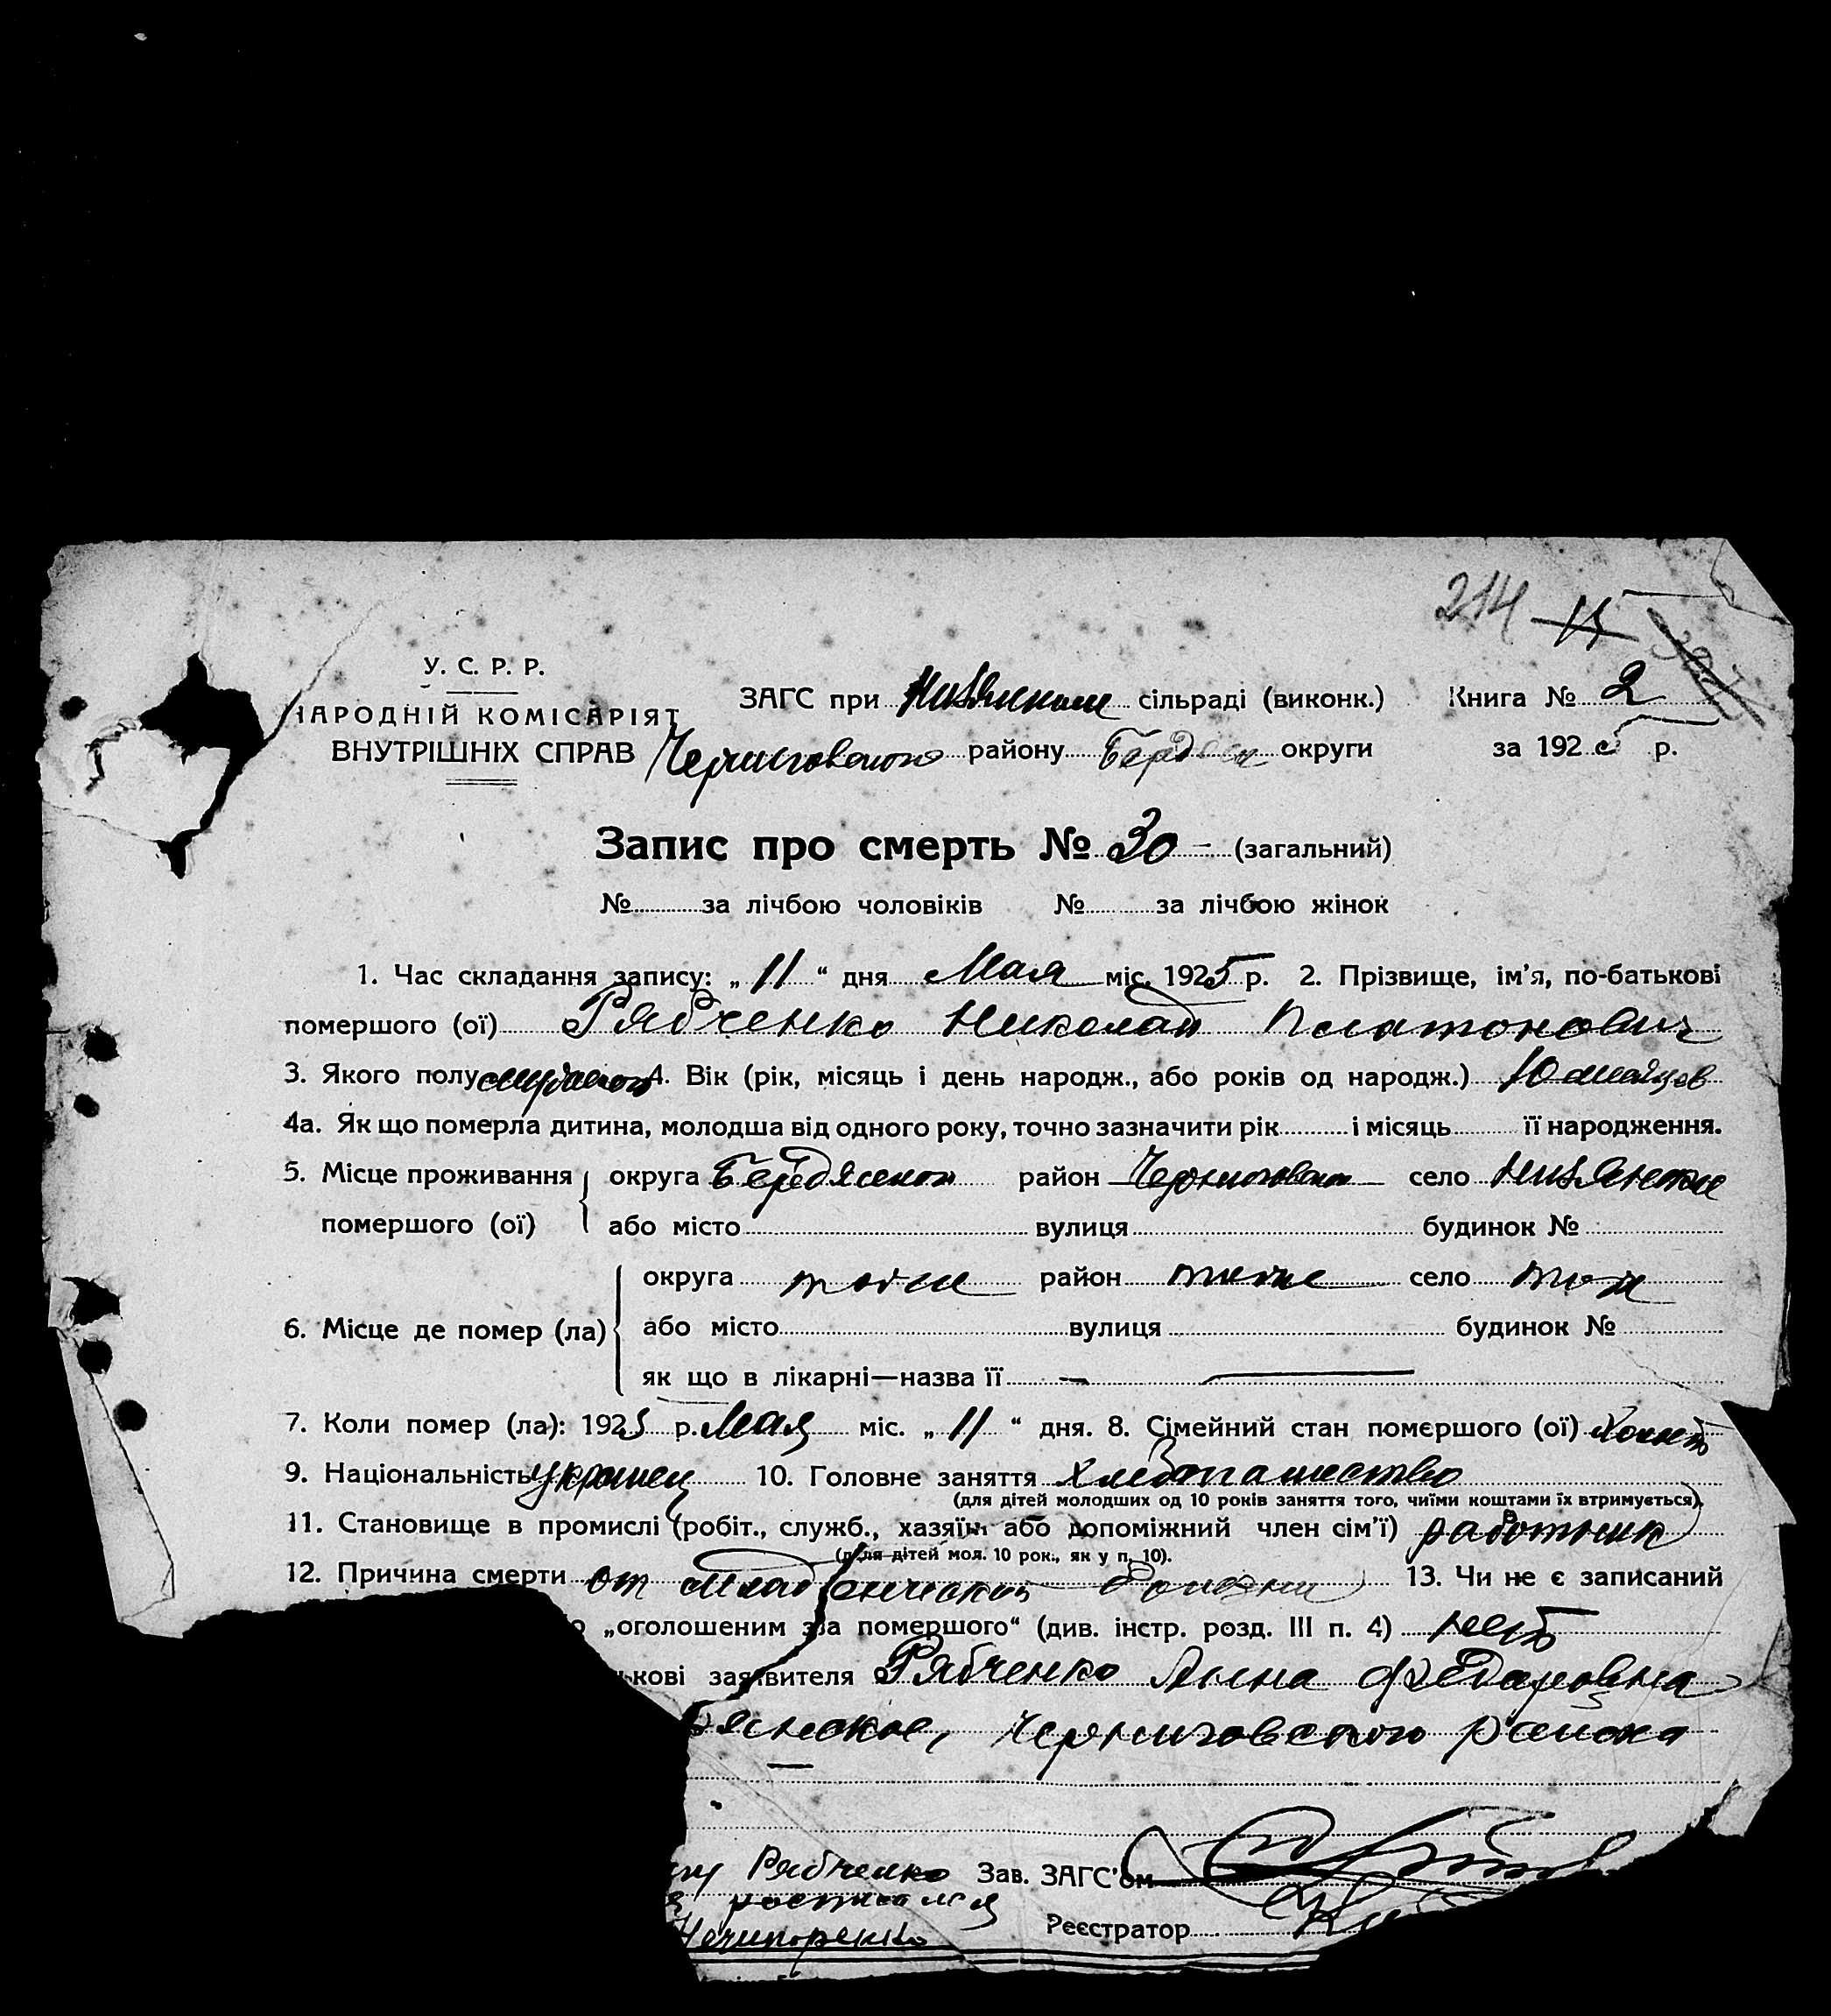 214 15
У. С. Р. Р.
НАРОДНІЙ КОМІСАРІЯТ
ВНУТРІШНІХ СПРАВ
ЗАГС при сільраді (виконк.) Книга № 2
Черниговского району Бердянск округи за 1925 р.
Запис про смерть № 30 - (загальний)
№ за лічбою чоловіків № за лічбою жінок
1. Час складання запису: „ 11 “ дня Мая міс. 1925 р. 2. Прізвище, ім'я, по-батькові
помершого (ої) Рябченко Николай Платонович
3. Якого полу мужского 4. Вік (рік, місяць і день народж., або років од народж.) 10 месяцев
4а. Як що померла дитина, молодша від одного року, точно зазначити рік і місяць її народження.
5. Місце проживання округа Бердянского район Черниговского село
помершого (ої) або місто вулиця будинок №
округа тоже район тоже село тож
6. Місце де помер (ла) або місто вулиця будинок №
як що в лікарні—назва її —
7. Коли помер (ла): 1925 р. Мая міс. „ 11 “ дня. 8. Сімейний стан помершого (ої) холост
9. Національність украинец 10. Головне заняття хлебопашество
(для дітей молодших од 10 років заняття того, чиїми коштами їх втримується).
11. Становище в промислі (робіт., служб., хазяїн або допоміжний член сім'ї) работник
(для дітей мол. 10 рок., як у п. 10).
12. Причина смерти от младенческой болезни 13. Чи не є записаний
„оголошеним за помершого“ (див. інстр. розд. III п. 4) нет
ькові заявителя Рябченко Анна Федаровна
янское, Черниговского района
Рябченко Зав. ЗАГС'ом
росписался
Нечипоренко Реєстратор